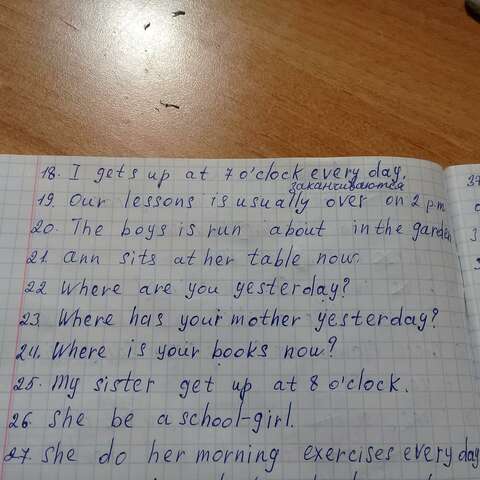 18. I gets up at 7 o'clock every day.
заканчиваются
19. Our lessons is usually over on 2 p.m
20. The boys is run about in the garden
21. ann sits at her table now.
22 Where are you yesterday?
23. Where has your mother yesterday?
24. Where is your books now?
25. My sister get up at 8 o'clock.
26. She be a school-girl.
27. She do her morning exercises every day
37